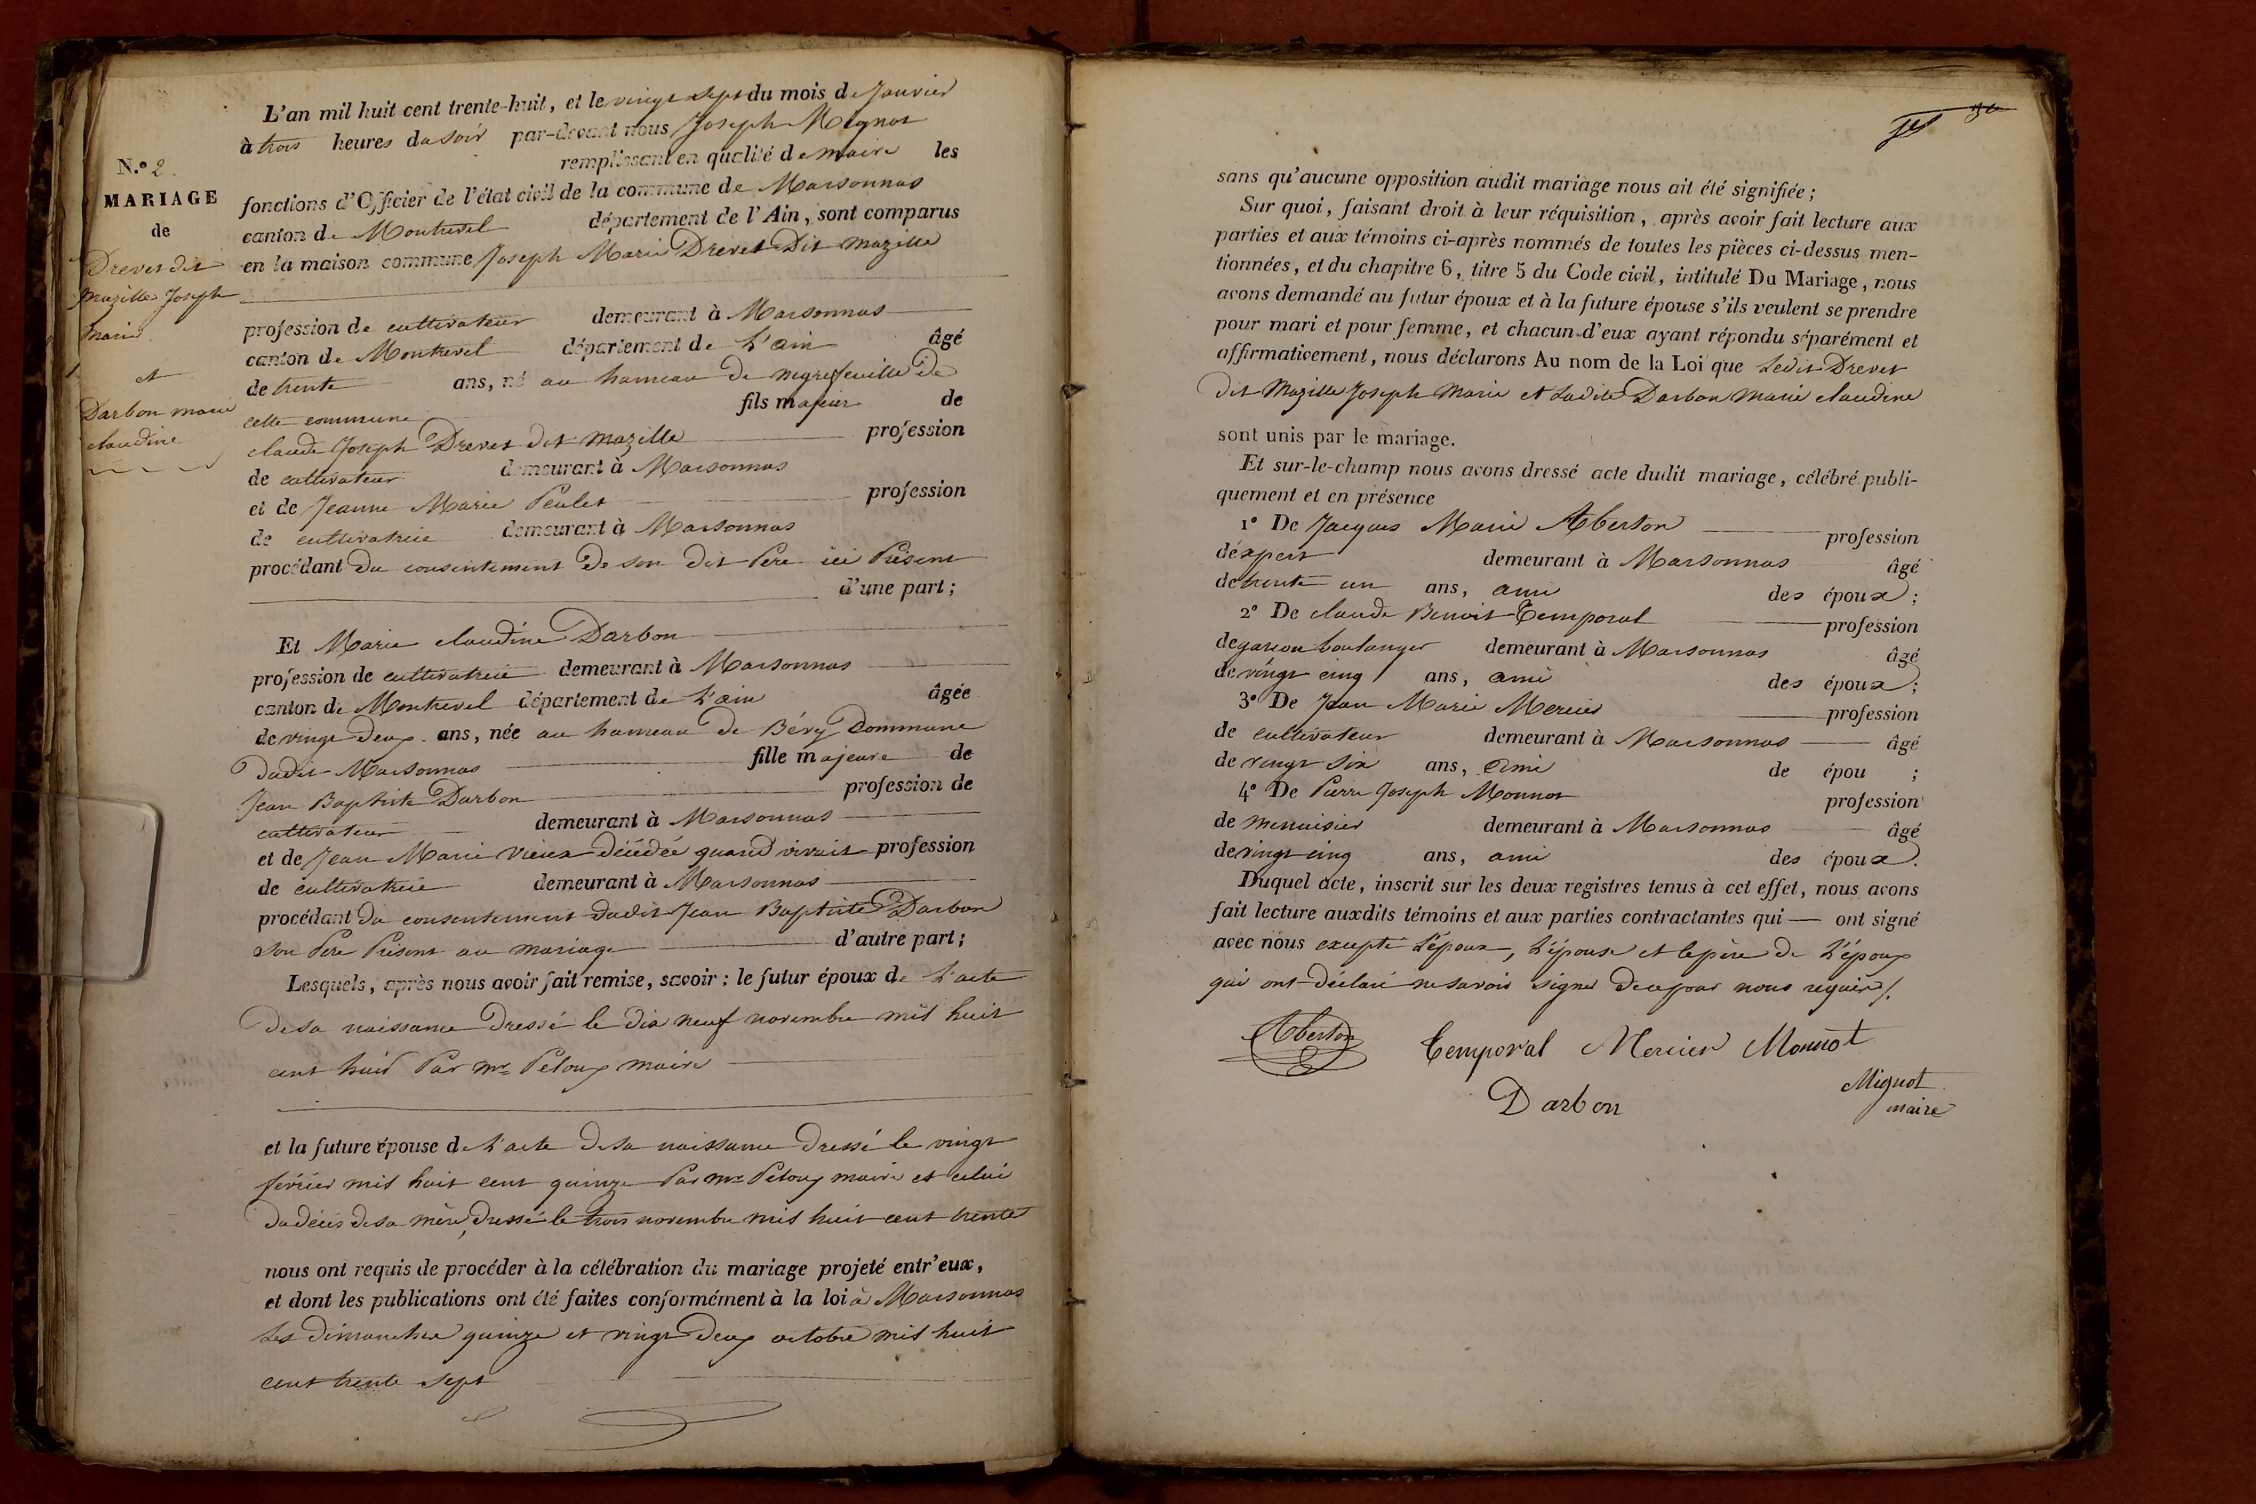 N.o 2.
MARIAGE
de
Drevet dit
Mazille Joseph
Marie
et
Darbon marie
claudine
L'an mil huit cent trente-huit, et le vingt sept du mois de Janvier
à trois heures du soir par-devant nous Joseph Mignot
remplissant en qualité de maire les
fonctions d'Officier de l'état civil de la commune de Marsonnas
canton de Montrevel département de l'Ain, sont comparus
en la maison commune Joseph Marie Drevet Dit Mazille
profession de cultivateur demeurant à Marsonnas
canton de Montrevel département de L'ain âgé
de trente ans, né au hameau de negrefeuille De
cette commune fils majeur de
claude Joseph Drevet dit Mazille profession
de cultivateur demeurant à Marsonnas
et de Jeanne Marie Peulet profession
de cultivatrice demeurant à Marsonnas
procédant Du consentement De son dit Pere ici Présent
d'une part;
Et Marie claudine Darbon
profession de cultivatrice demeurant à Marsonnas
canton de Montrevel département de L'ain âgée
de vingt deux ans, née au hameau de Béry Commune
Dudit Marsonnas fille majeure de
Jean Baptiste Darbon profession de
cultivateur demeurant à Marsonnas
et de Jean Marie Vieux décédée quand vivait profession
de cultivatrice demeurant à Marsonnas
procédant du consentement dudit Jean Baptiste Darbon
son Pere Présent au mariage d'autre part;
Lesquels, après nous avoir fait remise, savoir: le futur époux de L'acte
De sa naissance Dressé le dix neuf novembre mil huit
cent huit Par mr Peloux maire
et la future épouse de L'acte de sa naissance Dressé le vingt
février mil huit cent quinze Par mr Peloux maire et celui
Du décès de sa mère, dressé le trois novembre mil huit cent trente
nous ont requis de procéder à la célébration du mariage projeté entr'eux,
et dont les publications ont été faites conformément à la loi à Marsonnas
Les Dimanches quinze et vingt Deux octobre mil huit
cent trente sept
sans qu'aucune opposition audit mariage nous ait été signifiée;
Sur quoi, faisant droit à leur réquisition, après avoir fait lecture aux
parties et aux témoins ci-après nommés de toutes les pièces ci-dessus men-
tionnées, et du chapitre 6, titre 5 du Code civil, intitulé Du Mariage, nous
avons demandé au futur époux et à la future épouse s'ils veulent se prendre
pour mari et pour femme, et chacun d'eux ayant répondu séparément et
affirmativement, nous déclarons Au nom de la Loi que Ledit Drevet
dit Mazille Joseph Marie et Ladite Darbon Marie claudine
sont unis par le mariage.
Et sur-le-champ nous avons dressé acte dudit mariage, célébré publi-
quement et en présence
1° De Jacques Marie Aberton profession
d'éxpert demeurant à Marsonnas âgé
de trente un ans, ami des époux;
2° De claude Benoit Temporal profession
de garcon boulanger demeurant à Marsonnas âgé
de vingt cinq ans, ami des époux;
3° De Jean Marie Mercier profession
de cultivateur demeurant à Marsonnas âgé
de vingt six ans, ami de épou ;
4° De Pierre Joseph Monnot profession
de menuisier demeurant à Marsonnas âgé
de vingt cinq ans, ami des époux.
Duquel acte, inscrit sur les deux registres tenus à cet effet, nous avons
fait lecture auxdits témoins et aux parties contractantes qui ont signé
avec nous excepté L'époux, L'épouse et le père de L'époux
qui ont Déclaré ne savoir signer De ce par nous requis/.
Aberton Temporal Mercier Monnot
Darbon
Mignot
maire